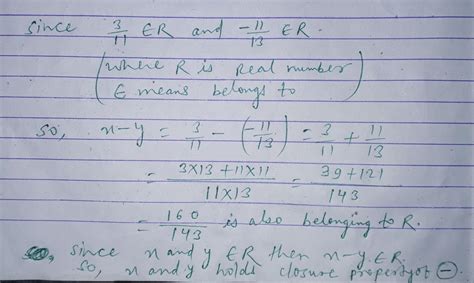 Since 3/11 ∈R and -11/13 ∈R.
(where R is Real number
∈ means belongs to)
So, x-y = 3/11 - (-11/13) = 3/11 + 11/13
= 3×13 + 11×11 / 11×13 = 39+121 / 143
= 160/143 is also belonging to R.
Since x and y ∈R then x-y ∈R.
So, x and y holds closure property of ⊖.